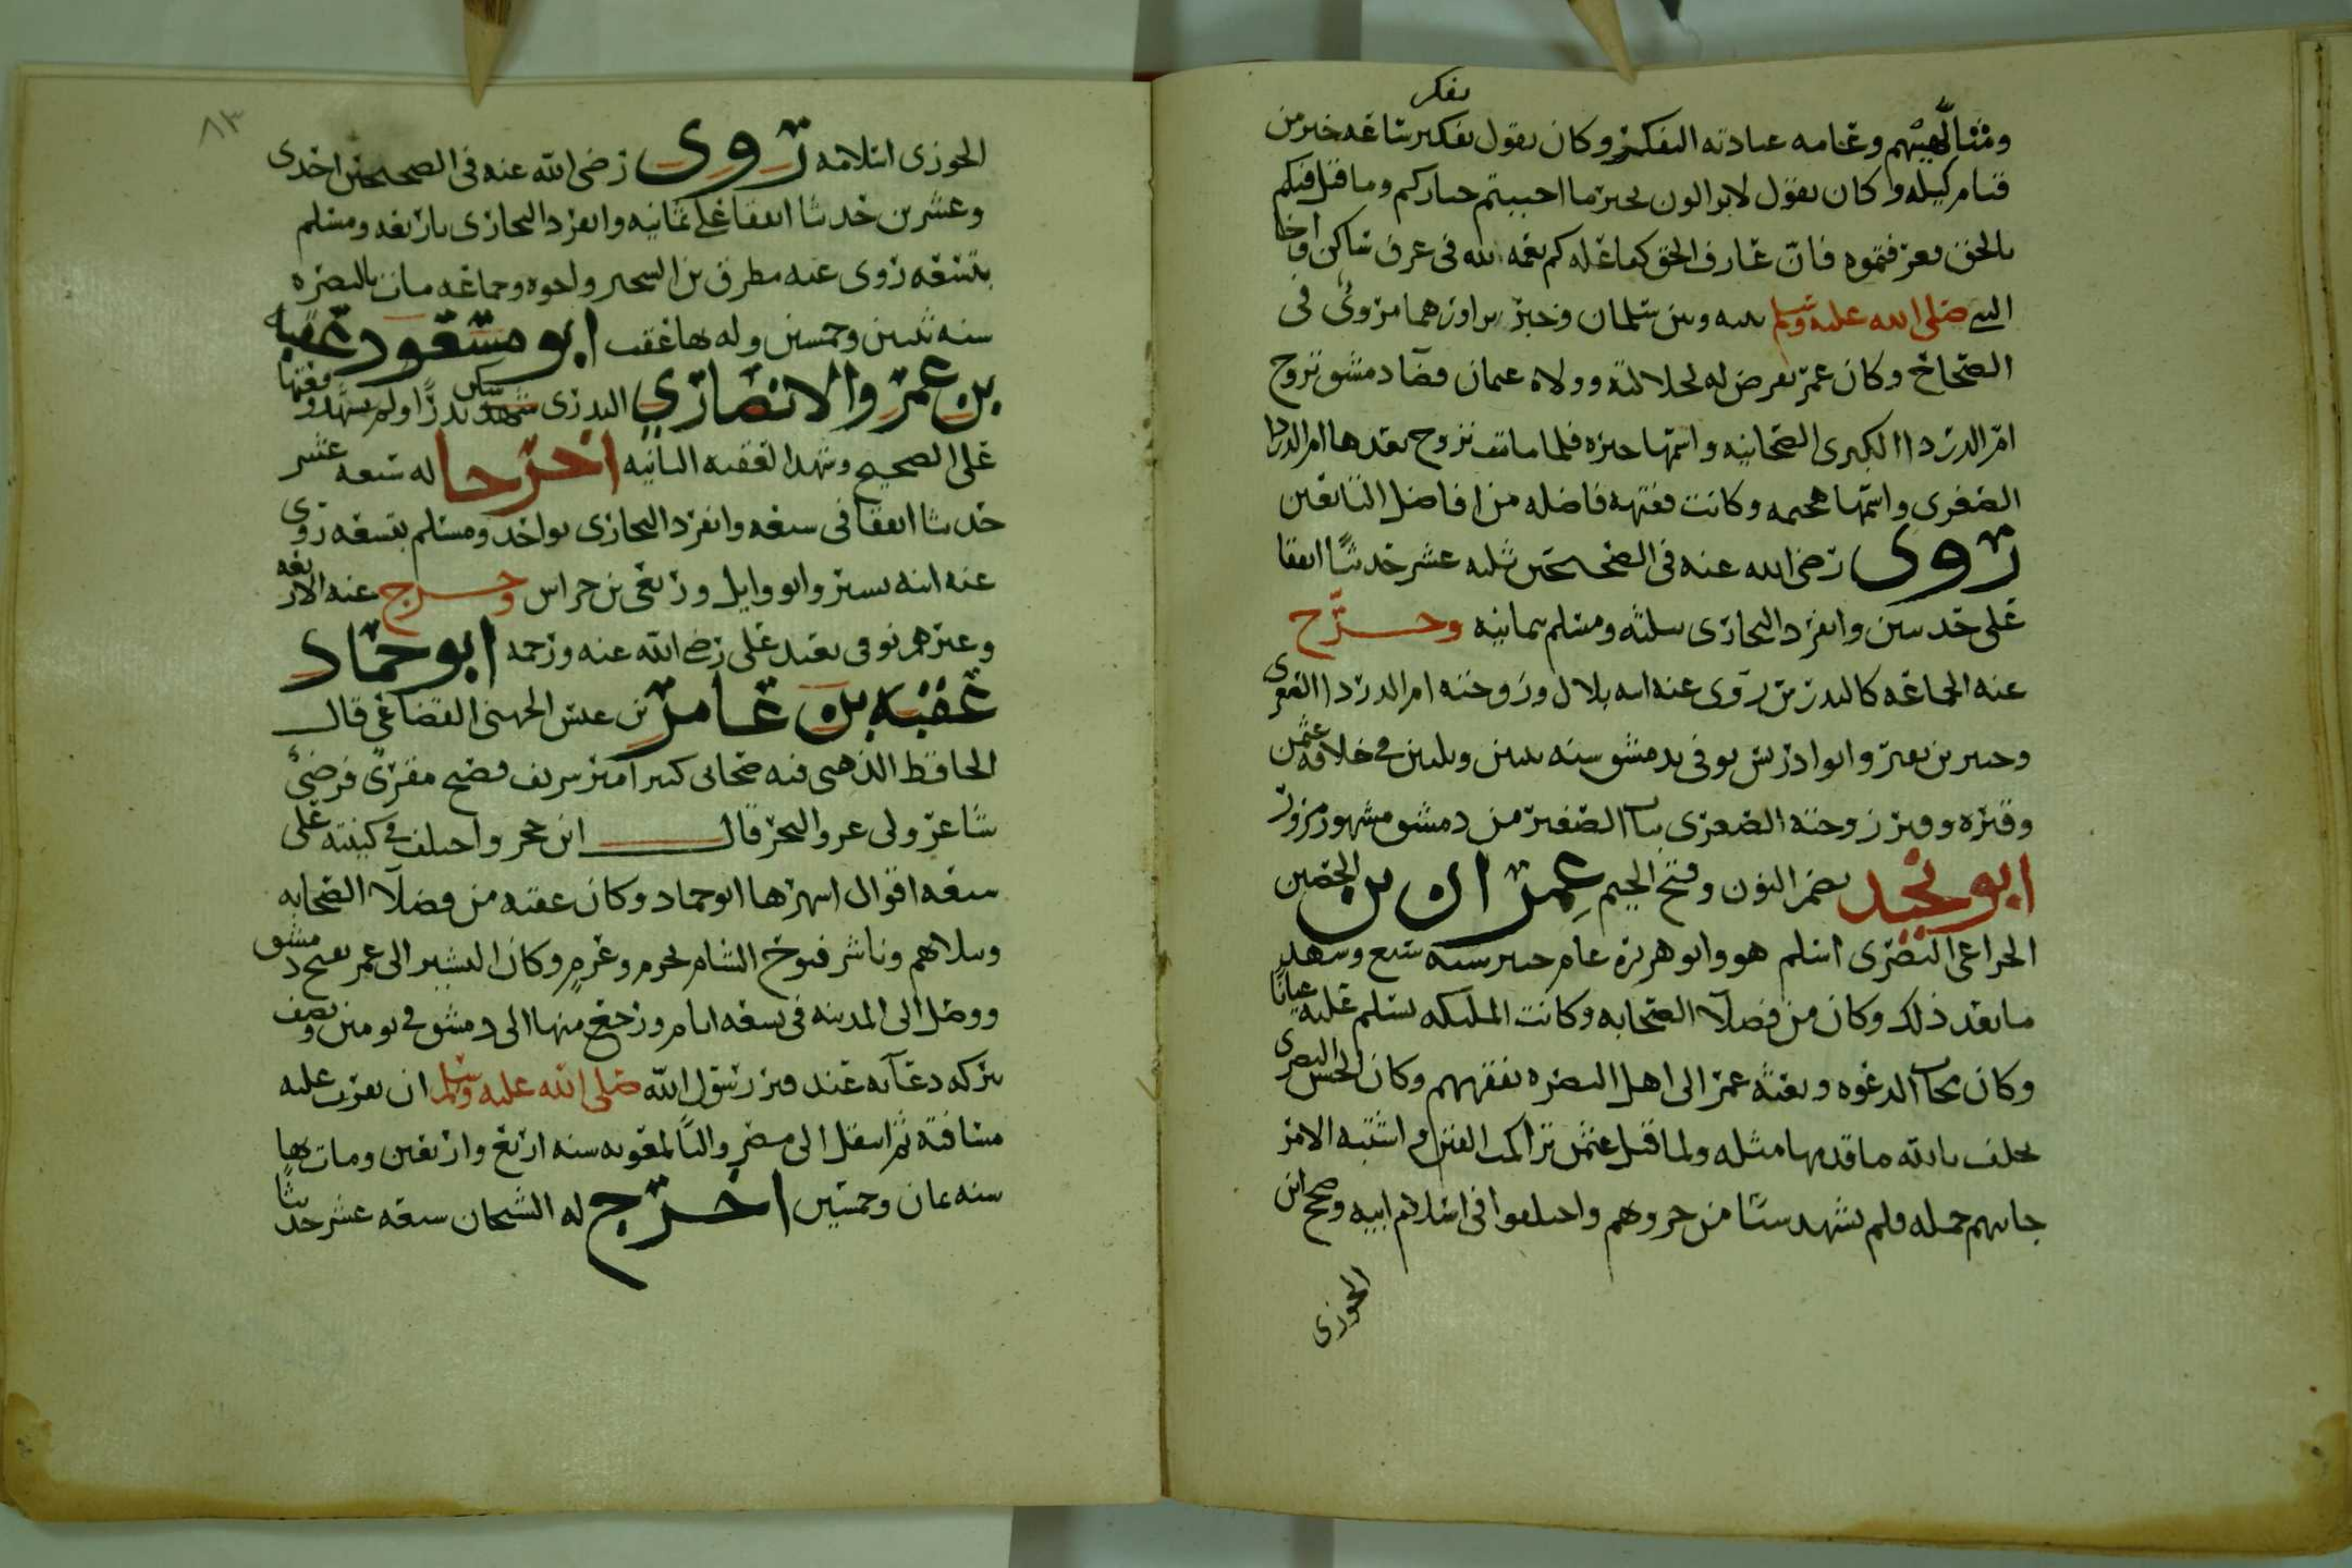 تفكر
ومتألهيهم وعامه عبادته التفكر وكان يقول تفكير ساعه خير من
قيام ليله وكان يقول لا يزالون بخير ما احببتم خياركم وما قيل فيكم
بالحق فعرفتموه فان عارف الحق كفاعله كم نعمه لله في عرق ساكن واخا
النبي صلى الله عليه وسلم بينه وبين سلمان وخبر تزاورهما مروي في
الصحاح وكان عمر يعرض له لجلالته وولاه عثمان قضا دمشق تزوج
ام الدردا الكبرى الصحابيه واسمها خيره فلما ماتت تزوج بعدها ام الدردا
الصغرى واسمها هجيمه وكانت فقيهه فاضله من افاضل التابعين
روى رضي الله عنه في الصحيحين ثلثه عشر حديثا اتفقا
على حديثين وانفرد البخاري بثلثه ومسلم بثمانيه وخرج
عنه الجماعه كالبدرين روى عنه ابنه بلال وزوجته ام الدردا الصغرى
وجبير بن نفير وابو ادريس توفي بدمشق سنه ثنتين وثلثين في خلافه عثمن
وقبره وقبر زوجته الصغرى بباب الصغير من دمشق مشهور مزور
ابو نجيد بضم النون وفتح الجيم عمران بن الحصين
الخزاعي البصري اسلم هو وابو هريره عام خيبر سنه سبع وشهد
ما بعد ذلك وكان من فضلا الصحابه وكانت المليكه تسلم عليه عيانا
وكان مجاب الدعوه وبعثه عمر الى اهل البصره يفقههم وكان الحسن البصري
يحلف بالله ما قدمها مثله ولما قتل عثمن تراكمت الفتن واشتبه الامر
جانبهم جمله ولم يشهد شيئا من حروبهم واختلفوا في اسلام ابيه وصحح ابن
الجوزي
٨٣
الجوزي اسلامه روى رضي الله عنه في الصحيحين احدى
وعشرين حديثا اتفقا على ثمانيه وانفرد البخاري باربعه ومسلم
بتسعه روى عنه مطرف بن الشخير واخوه وجماعه مات بالبصره
سنه ثنتين وخمسين وله بها عقب ابو مسعود عقبه
بن عمرو الانصاري البدري سكن بدرا ولم يشهد وقعتها
على الصحيح وشهد العقبه الثانيه اخرجا له سبعه عشر
حديثا اتفقا في سبعه وانفرد البخاري بواحد ومسلم بتسعه روى
عنه ابنه بشير وابو وايل وربعي بن حراش وخرج عنه الاربعه
وغيرهم توفي بعيد علي رضي الله عنه ورحمه ابو حماد
عقبه بن عامر بن عبس الجهني القضاعي قال
الحافظ الذهبي فيه صحابي كبير امير شريف فصيح مقرئ فرضي
شاعر ولي غزو البحر قال ابن حجر واختلف في كنيته على
سبعه اقوال اشهرها ابو حماد وكان عقبه من فضلا الصحابه
ونبلاهم وباشر فتوح الشام بحزم وعزم وكان البشير الى عمر بفتح دمشق
ووصل الى المدينه في سبعه ايام ورجع منها الى دمشق في يومين ونصف
ببركه دعايه عند قبر رسول الله صلى الله عليه وسلم ان يقرب عليه
مسافته ثم انتقل الى مصر واليا لمعويه سنه اربع واربعين ومات بها
سنه ثمان وخمسين اخرج له الشيخان سبعه عشر حديثا